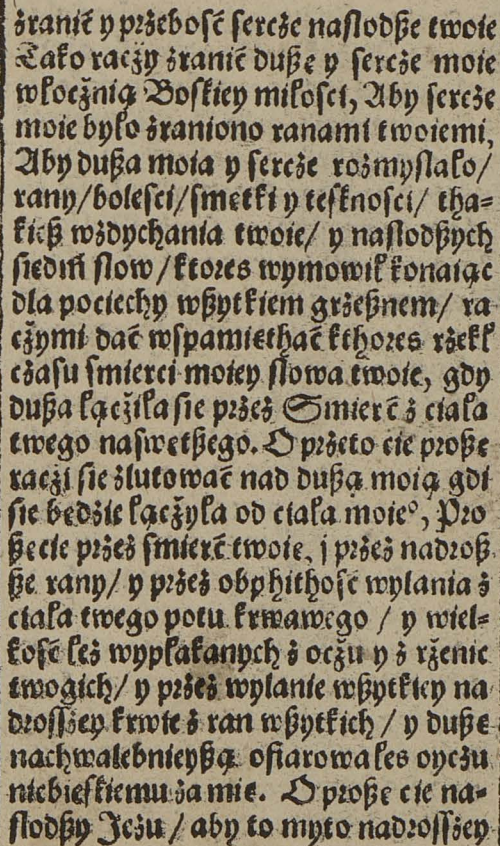 źranić y prżebość sercże nasłodßße twoie
Tako racży źranić dußę y sercże moie
włocżnią Boskiey miłosci, Aby sercże
moie było źraniono ranami twoiemi,
Aby dußa moia y sercże rozmysłało/
rany/bolesci/smętki y tesknosci/ tha⸗
kieß wzdychania twoie/ y nasłodßych
siedm̃ słow/ktores wymowił konaiąc
dla pociechy wßytkiem grżeßnem/ ra
cżymi dać wspamięthać kthores rżekł
cżasu smierci moiey słowa twoie, gdy
dußa łącżiła sie przeż Smierć ż ciała
twego naswetßego. O prżeto cie proßę
racżi sie żlutować nad dußą moią gdi
sie będzie łącżyła od ciała moie°, Pro
ßęcie przeż smierć twoie, j przeż nadroß
ße rany/ y przeż obphithość wylania ż
ciała twego potu krwawego / y wiel⸗
kość leż wypłakanych ż ocżu y ż rżenic
twogich/ y przeż wylanie wßytkiey na
drosßey krwie ż ran wßytkich / y duße
nachwalebnieyßą ofiarowałes oycżu
niebieskiemu za mie. O proßę cie na⸗
słodßy Jeżu / aby to myto nadrosßey